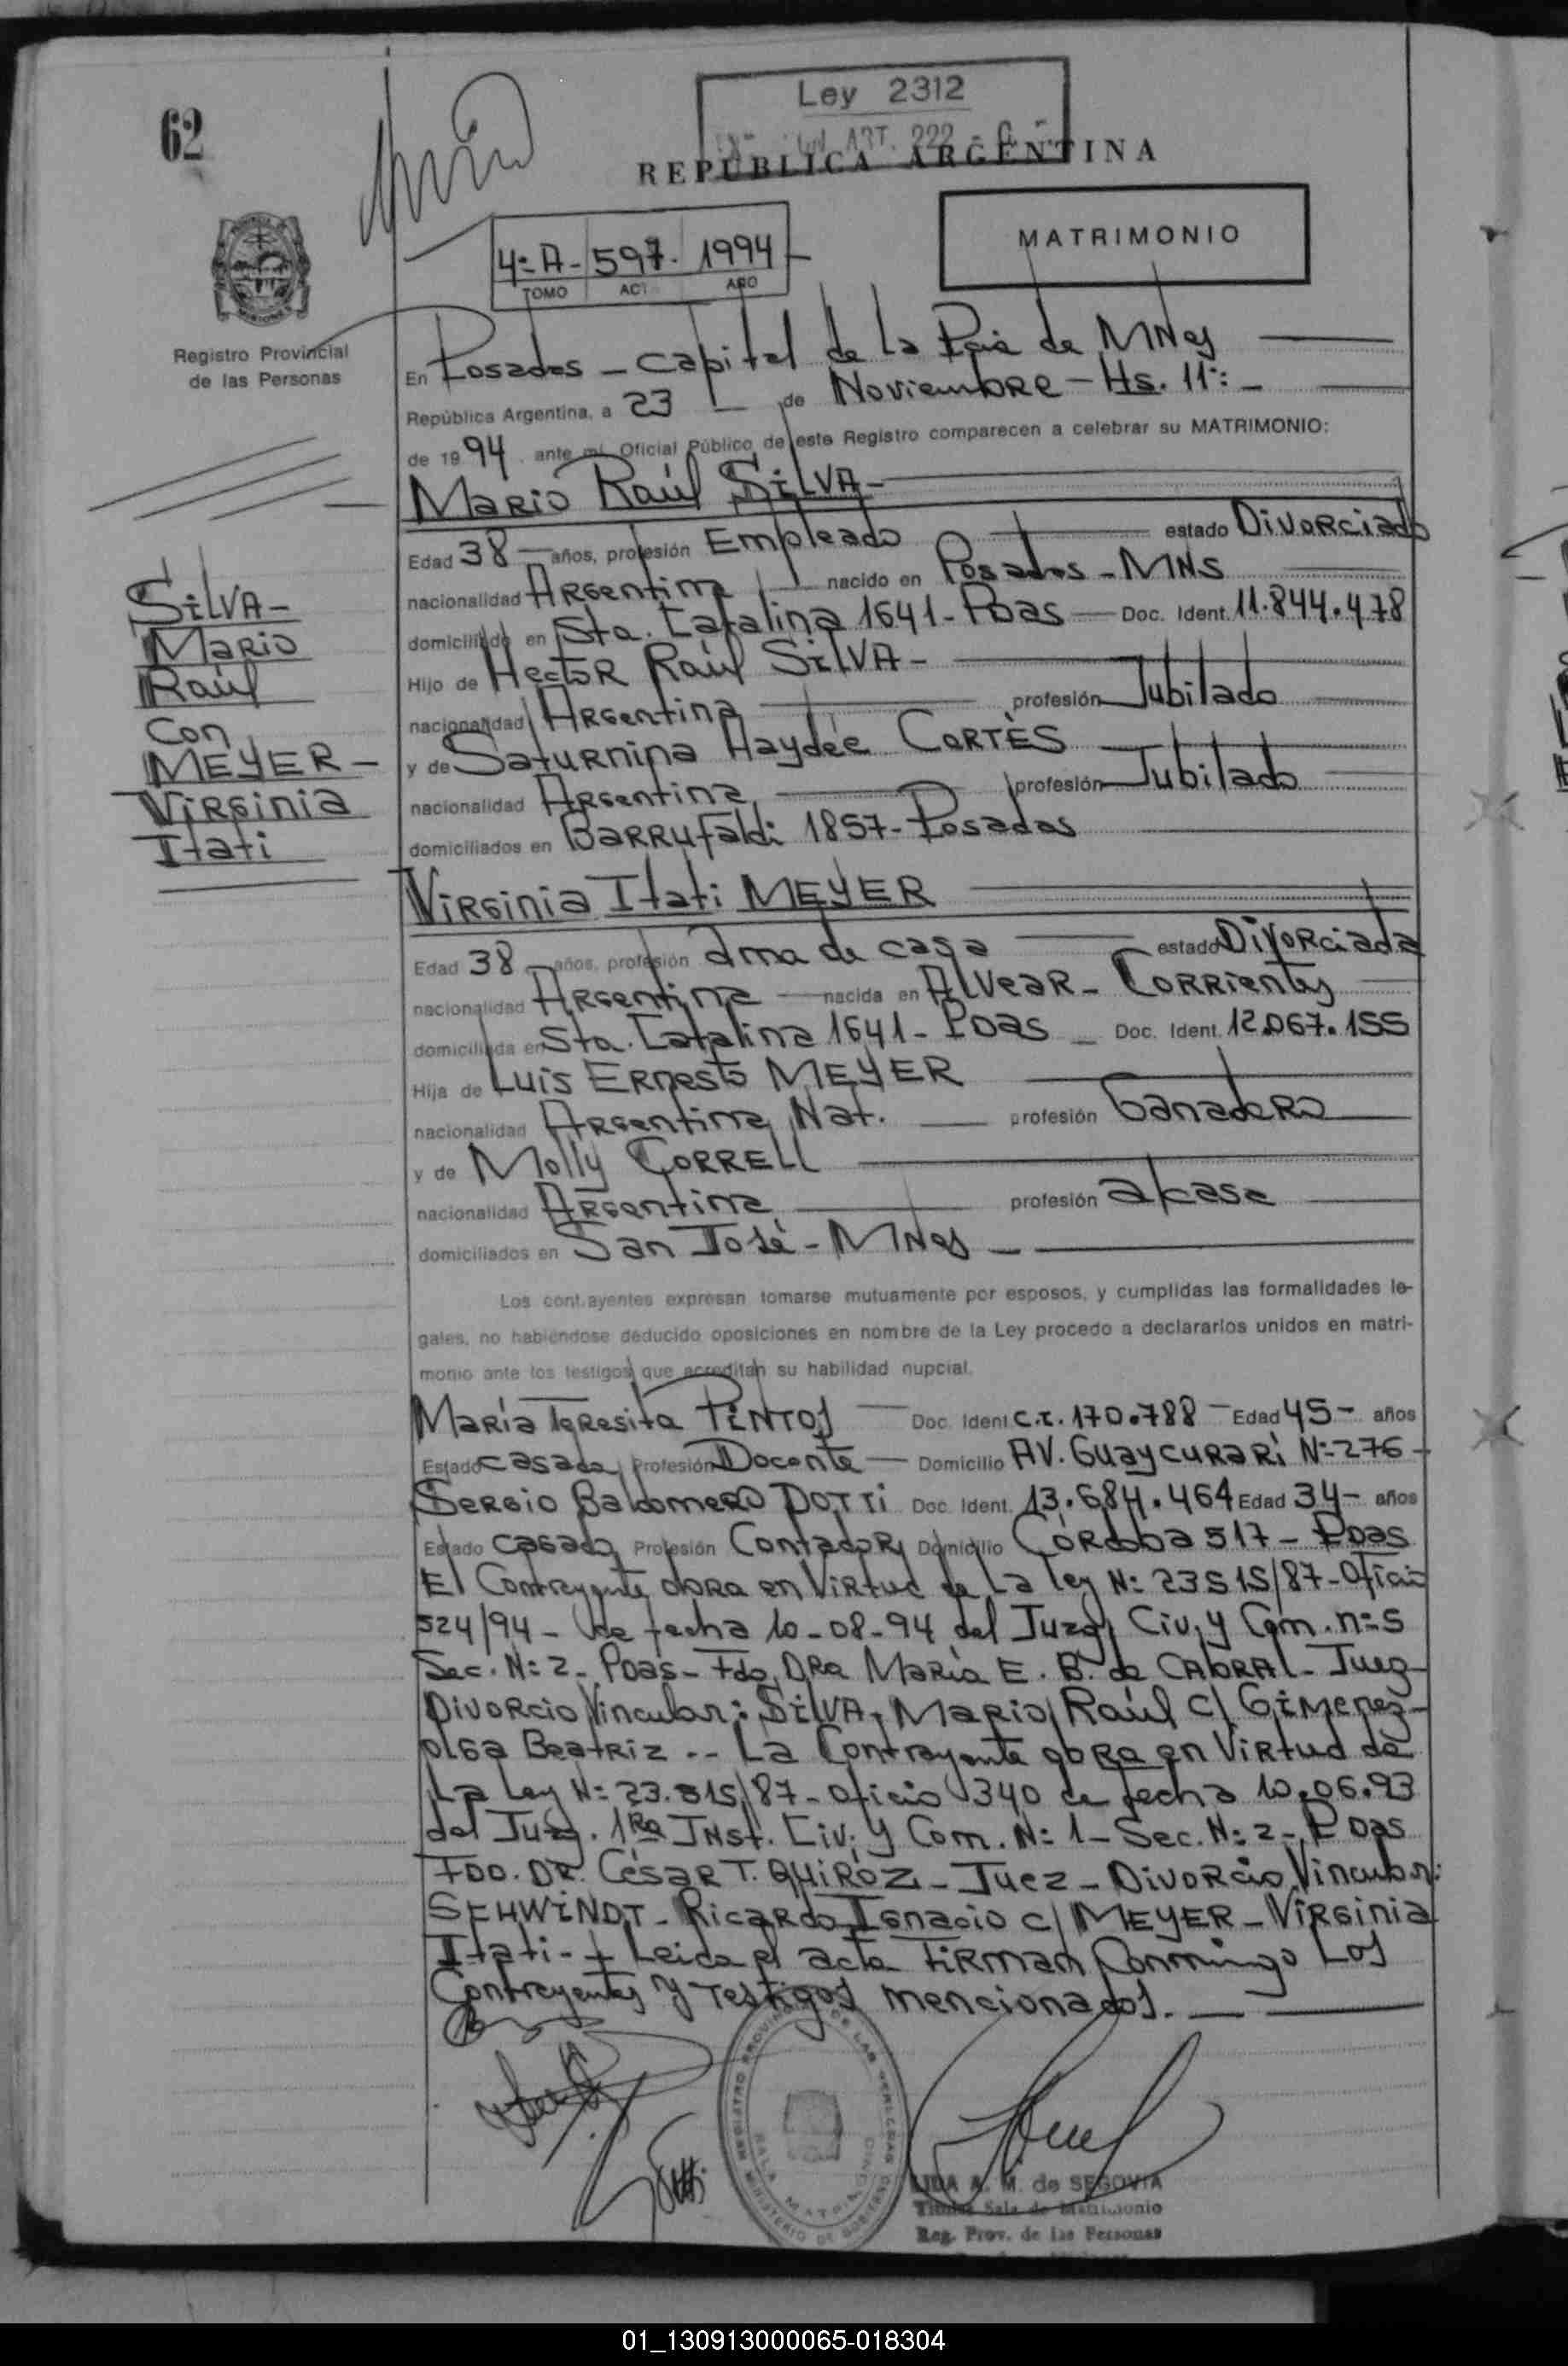 62
Ley 2312
ART. 222
REPUBLICA ARGENTINA
MATRIMONIO
4:A- 597. 1994
TOMO ACTA AÑO
Registro Provincial
de las Personas
En Posadas - Capital de la Pcia de MNes
República Argentina, a 23 de Noviembre - Hs. 11:
de 1994 ante mí Oficial Público de este Registro comparecen a celebrar su MATRIMONIO:
Mario Raúl SILVA-
Edad 38 años, profesión Empleado estado Divorciado
nacionalidad Argentina nacido en Posadas - MNS
domiciliado en Sta. Catalina 1641 - Pdas Doc. Ident. 11.844.478
Hijo de Hector Raúl SILVA-
nacionalidad Argentina profesión Jubilado
y de Saturnina Haydée CORTÈS
nacionalidad Argentina profesión Jubilado
domiciliados en Barrufaldi 1857 - Posadas
SILVA-
Mario
Raúl
Con
MEYER-
Virginia
Itati
Virginia Itati MEYER
Edad 38 años, profesión ama de casa estado Divorciada
nacionalidad Argentina nacida en Alvear - Corrientes
domiciliada en Sta. Catalina 1641 - Pdas Doc. Ident. 12.067.155
Hija de Luis Ernesto MEYER
nacionalidad Argentina Nat. profesión Ganadero
y de Molly CORRELL
nacionalidad Argentina profesión a/casa
domiciliados en San José - MNes
Los contrayentes expresan tomarse mutuamente por esposos, y cumplidas las formalidades le-
gales, no habiéndose deducido oposiciones en nombre de la Ley procedo a declararlos unidos en matri-
monio ante los testigos que acreditan su habilidad nupcial.
María Teresita PINTOS Doc. Ident C.I. 170.788 Edad 45 años
Estado casada Profesión Docente Domicilio AV. Guaycurarí N:276
Sergio Baldomero DOTTI Doc. Ident. 13.684.464 Edad 34 años
Estado casado Profesión Contador Domicilio Córdoba 517 - Pdas
El Contrayente obra en virtud de La Ley N: 23515/87 - Oficio
524/94 - de fecha 10-08-94 del Juzg. Civ. y Com. n:5
Sec. N: 2 - Pdas - Fdo. Dra María E. B. de CABRAL - Juez
Divorcio Vincular: SILVA, Mario Raúl c/ Gimenez
Olga Beatriz -- La Contrayente obra en Virtud de
La Ley N: 23.515/87 - Oficio 340 de fecha 10.06.93
del Juzg. 1Ra Inst. Civ. y Com. N: 1 - Sec. N: 2 - Pdas
Fdo. DR. César T. QUIRÓZ - Juez - Divorcio Vincular:
SCHWINDT - Ricardo Ignacio c/ MEYER - Virginia
Itati - Leida el acta Firman Conmigo Los
Contrayentes y Testigos mencionados.
REGISTRO PROVINCIAL DE LAS PERSONAS
SALA MATRIMONIO
MINISTERIO DE GOBIERNO
LIDA A. M. de SEGOVIA
Titular Sala de Matrimonio
Reg. Prov. de las Personas
01_130913000065-018304